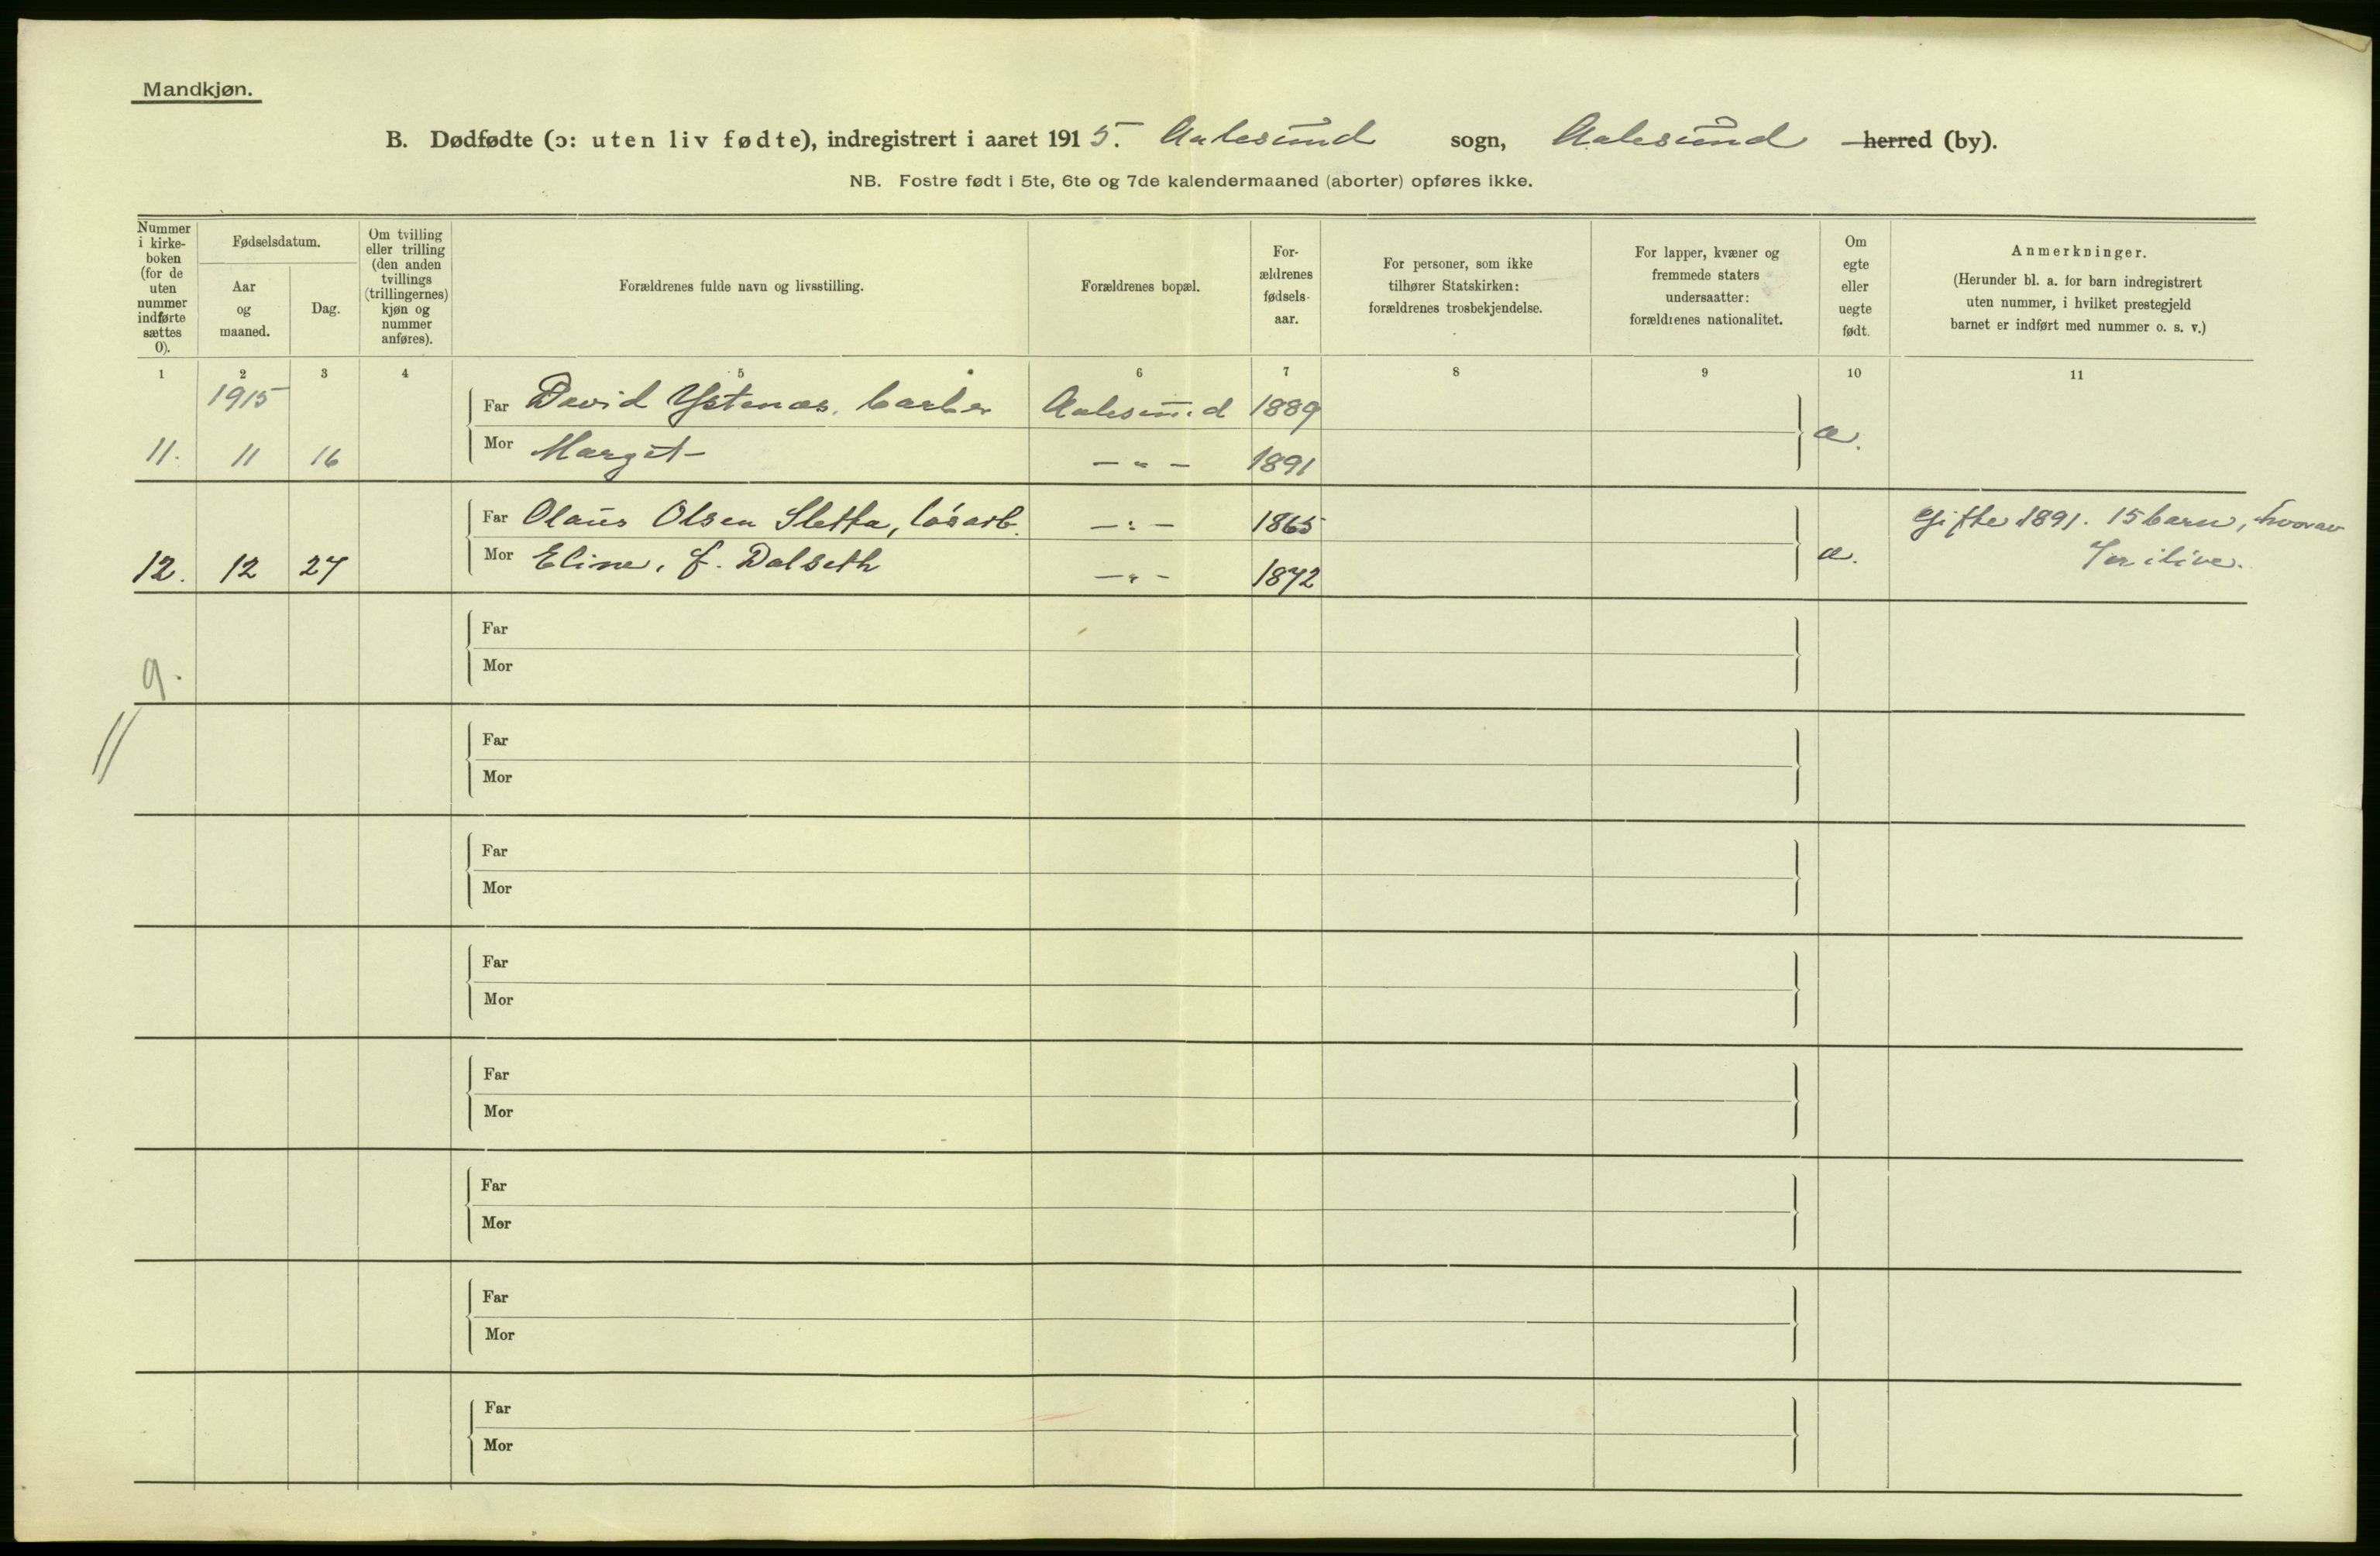 Mandkjøn.
B. Dødfødte (ɔ: uten liv fødte), indregistrert i aaret 1915. Aalesund sogn, Aalesund herred (by).
NB. Fostre født i 5te, 6te og 7de kalendermaaned (aborter) opføres ikke.
Nummer
i kirke-
boken
(for de
uten
nummer
indførte
sættes
0).
Fødselsdatum.
Aar
og
maaned.
Dag.
Om tvilling
eller trilling
(den anden
tvillings
(trillingernes)
kjøn og
nummer
anføres).
Forældrenes fulde navn og livsstilling.
Forældrenes bopæl.
For-
ældrenes
fødsels-
aar.
For personer, som ikke
tilhører Statskirken:
forældrenes trosbekjendelse.
For lapper, kvæner og
fremmede staters
undersaatter:
forældrenes nationalitet.
Om
egte
eller
uegte
født.
Anmerkninger.
(Herunder bl. a. for barn indregistrert
uten nummer, i hvilket prestegjeld
barnet er indført med nummer o. s. v.)
1 2 3 4 5 6 7 8 9 10 11
1915
Far David Ystenæs, barber Aalesund 1889
11. 11 16 Mor Margit — " — 1891 æ.
Far Olaus Olsen Sletta, løsarb. — " — 1865 Gifte 1891. 15 barn, hvorav
12. 12 27 Mor Eline, f. Dalseth — " — 1872 æ. ilive.
Far
9. Mor
//
Far
Mor
Far
Mor
Far
Mor
Far
Mor
Far
Mor
Far
Mor
Far
Mor